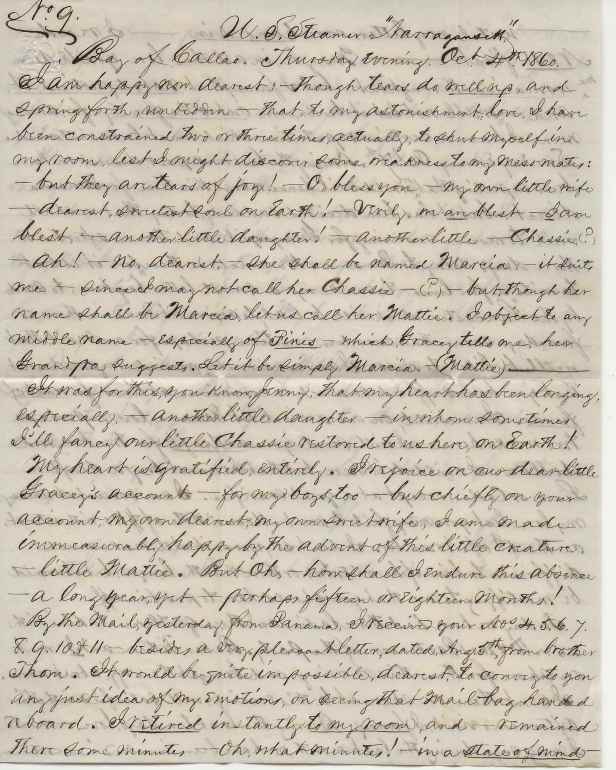 No 9.
U. S. Steamer "Narragansett"
Bay of Callao. Thursday evening. Oct 4th 1860.
I am happy now dearest; - though tears do well up, and
spring forth, unbidden - that, to my astonishment, love, I have
been constrained two or three times, actually, to shut myself in
my room, lest I might discover some weakness to my messmates:
- but they are tears of joy! - O, bless you - my own little wife
- dearest, sweetest soul on Earth! - Verily, I am blest - I am
blest, - another little daughter! - another little Chassie (?)
- Ah! - no, dearest, - she shall be named Marcia - it suits
me - since I may not call her Chassie - (?) - but though her
name shall be Marcia, let us call her Mattie. I object to any
middle name - especially of Pines - which Gracey tells me, her
Grandpa suggests. Let it be simply Marcia - (Mattie)
It was for this, you know, Jenny, that my heart has been longing,
especially, - another little daughter - in whom sometimes
I'll fancy our little Chassie restored to us here, on Earth!
My heart is gratified, entirely. I rejoice on our dear little
Gracey's account - for my boys, too - but chiefly on your
account, my own dearest, my own sweet wife. I am made
immeasurably happy by the advent of this little creature.
- little Mattie. But Oh, - how shall I endure this absence
- a long year, yet - perhaps fifteen or Eighteen Months!
By the Mail, yesterday, from Panama, I received your Nos 4. 5. 6. 7.
8. 9. 10 & 11 - besides a very pleasant letter, dated Aug 5th from brother
Thom. It would be quite impossible, dearest, to convey to you
any just idea of my Emotions, on seeing that Mail bag handed
aboard. I retired instantly to my room, and - remained
there some minutes - Oh, what minutes! - in a state of mind -